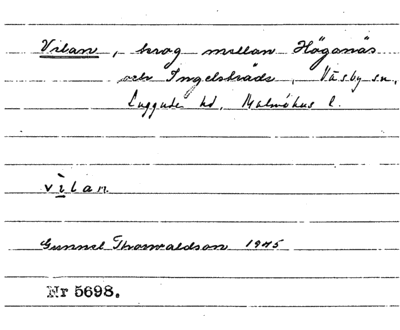 Vilan, krog mellan Höganäs
och Ingelsträde, Väsby sn,
Luggude hd, Malmöhus l.
vilan
Gunnel Thorwaldson 1945
Nr 5698.